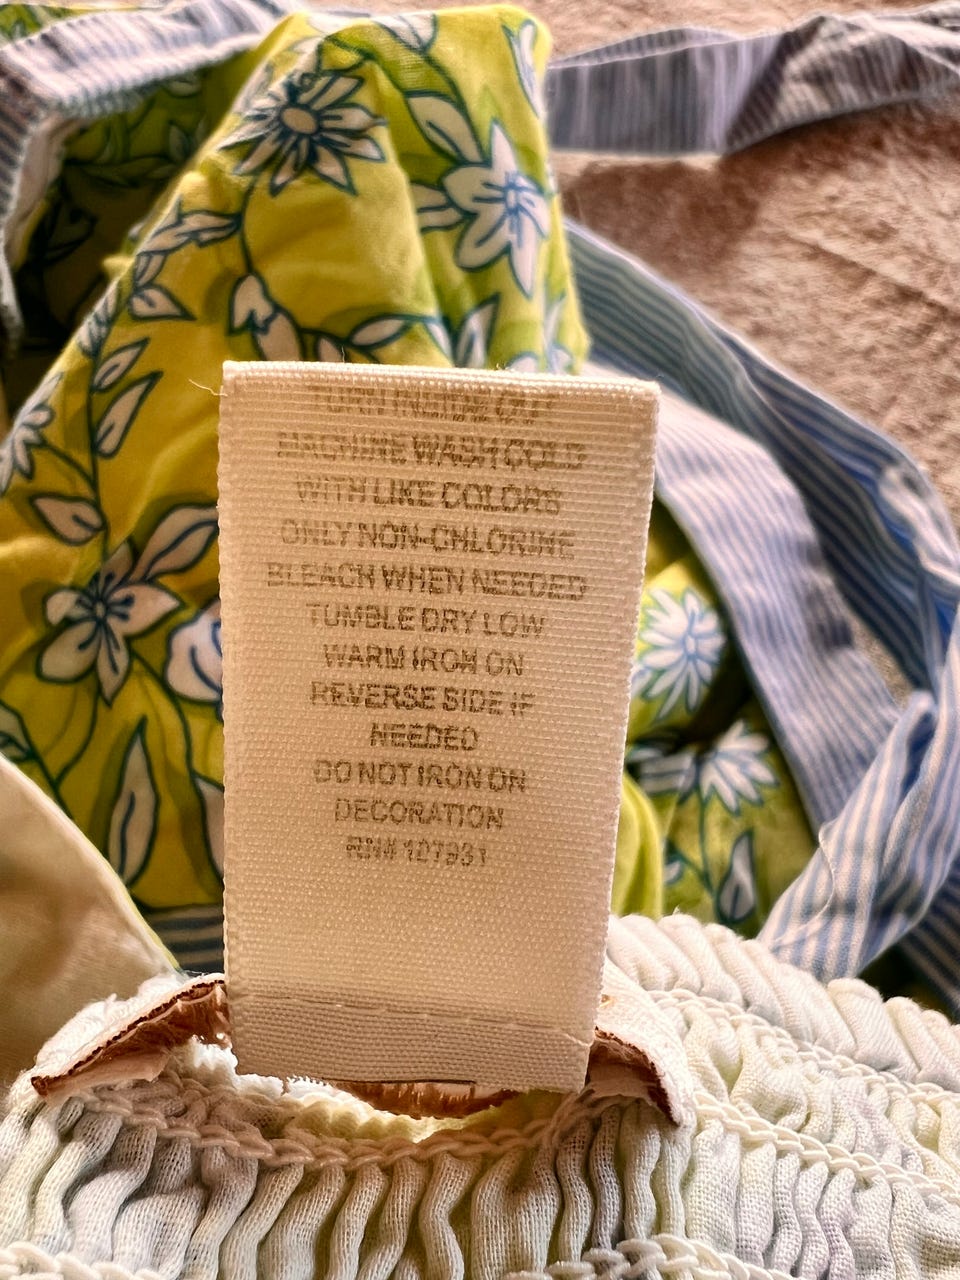 TURN INSIDE OUT
MACHINE WASH COLD
WITH LIKE COLORS
ONLY NON-CHLORINE
BLEACH WHEN NEEDED
TUMBLE DRY LOW
WARM IRON ON
REVERSE SIDE IF
NEEDED
DO NOT IRON ON
DECORATION
RN# 107931